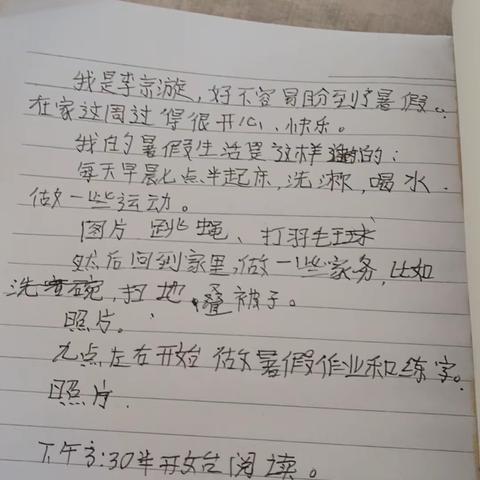 我是李京漩,好不容易盼到了暑假。
在家这周过得很开心、快乐。
我的暑假生活是这样的:
每天早晨七点半起床,洗漱,喝水.
做一些运动。
图片 跳蝇、打羽毛球
然后回到家里,做一些家务,比如
洗碗,扫地,叠被子。
照片。
九点左右开始做暑假作业和练字。
照片.
下午3:30半开始阅读。